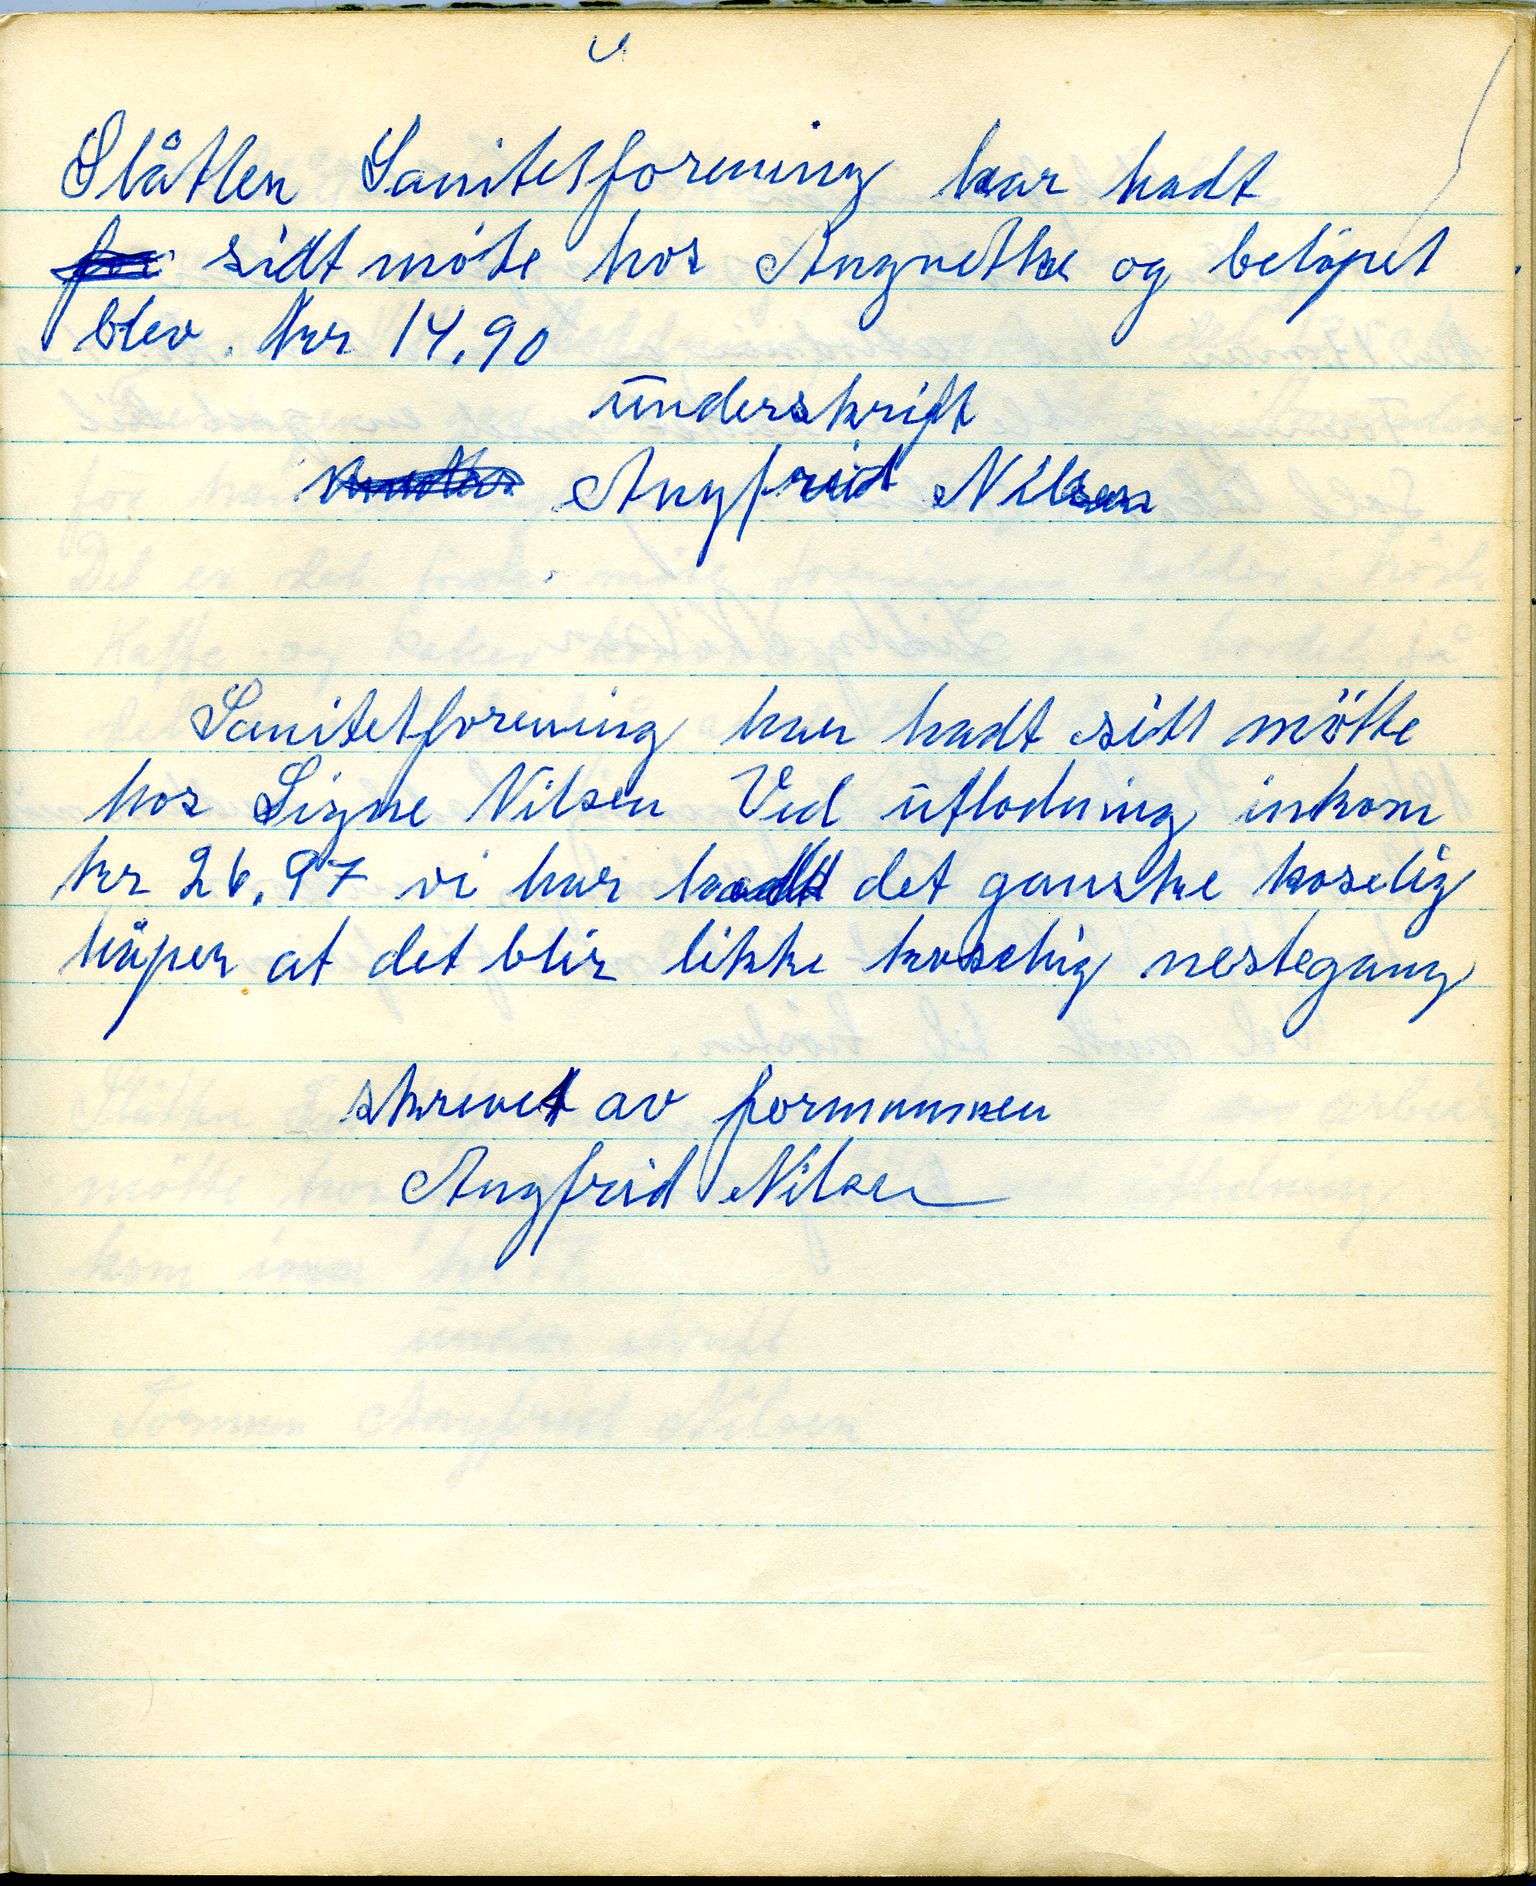 Slåtten Sanitetsforening har hadt
sidt møte hos Angnethe og beløpet
blev. Kr 14.90
ūnderskrift
Angfrid Nilsen
Sanitetforening har hadt sitt møtte
hos Signe Nilsen Ved ūtlodning inkom
kr 26.97 vi har hadt det ganske koselig
håper at det blir likke koselig nestegang
skrevet av formannen
Angfrid Nilsen